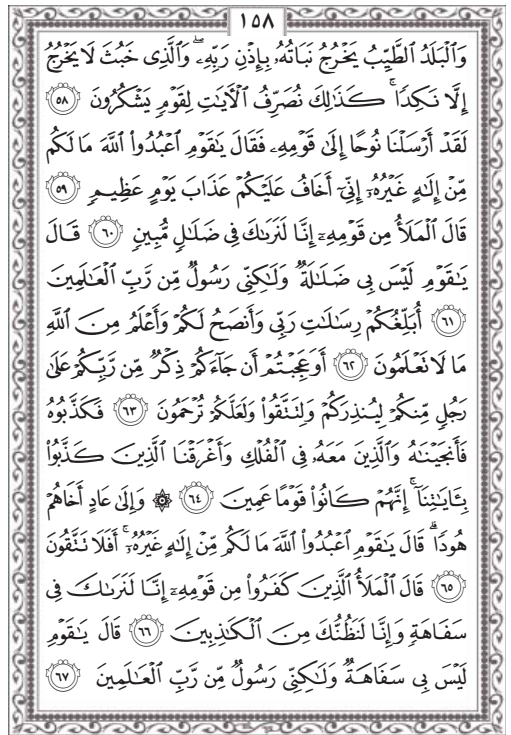 ١٥٨
وَٱلْبَلَدُ ٱلطَّيِّبُ يَخْرُجُ نَبَاتُهُۥ بِإِذْنِ رَبِّهِۦ ۖ وَٱلَّذِى خَبُثَ لَا يَخْرُجُ
إِلَّا نَكِدًا ۚ كَذَٰلِكَ نُصَرِّفُ ٱلْـَٔايَٰتِ لِقَوْمٍ يَشْكُرُونَ ٥٨
لَقَدْ أَرْسَلْنَا نُوحًا إِلَىٰ قَوْمِهِۦ فَقَالَ يَٰقَوْمِ ٱعْبُدُوا۟ ٱللَّهَ مَا لَكُم
مِّنْ إِلَٰهٍ غَيْرُهُۥٓ إِنِّىٓ أَخَافُ عَلَيْكُمْ عَذَابَ يَوْمٍ عَظِيمٍ ٥٩
قَالَ ٱلْمَلَأُ مِن قَوْمِهِۦٓ إِنَّا لَنَرَىٰكَ فِى ضَلَٰلٍ مُّبِينٍ ٦٠ قَالَ
يَٰقَوْمِ لَيْسَ بِى ضَلَٰلَةٌ وَلَٰكِنِّى رَسُولٌ مِّن رَّبِّ ٱلْعَٰلَمِينَ
٦١ أُبَلِّغُكُمْ رِسَٰلَٰتِ رَبِّى وَأَنصَحُ لَكُمْ وَأَعْلَمُ مِنَ ٱللَّهِ
مَا لَا تَعْلَمُونَ ٦٢ أَوَعَجِبْتُمْ أَن جَآءَكُمْ ذِكْرٌ مِّن رَّبِّكُمْ عَلَىٰ
رَجُلٍ مِّنكُمْ لِيُنذِرَكُمْ وَلِتَتَّقُوا۟ وَلَعَلَّكُمْ تُرْحَمُونَ ٦٣ فَكَذَّبُوهُ
فَأَنجَيْنَٰهُ وَٱلَّذِينَ مَعَهُۥ فِى ٱلْفُلْكِ وَأَغْرَقْنَا ٱلَّذِينَ كَذَّبُوا۟
بِـَٔايَٰتِنَآ ۚ إِنَّهُمْ كَانُوا۟ قَوْمًا عَمِينَ ٦٤ ۞ وَإِلَىٰ عَادٍ أَخَاهُمْ
هُودًا ۗ قَالَ يَٰقَوْمِ ٱعْبُدُوا۟ ٱللَّهَ مَا لَكُم مِّنْ إِلَٰهٍ غَيْرُهُۥٓ ۚ أَفَلَا تَتَّقُونَ
٦٥ قَالَ ٱلْمَلَأُ ٱلَّذِينَ كَفَرُوا۟ مِن قَوْمِهِۦٓ إِنَّا لَنَرَىٰكَ فِى
سَفَاهَةٍ وَإِنَّا لَنَظُنُّكَ مِنَ ٱلْكَٰذِبِينَ ٦٦ قَالَ يَٰقَوْمِ
لَيْسَ بِى سَفَاهَةٌ وَلَٰكِنِّى رَسُولٌ مِّن رَّبِّ ٱلْعَٰلَمِينَ ٦٧